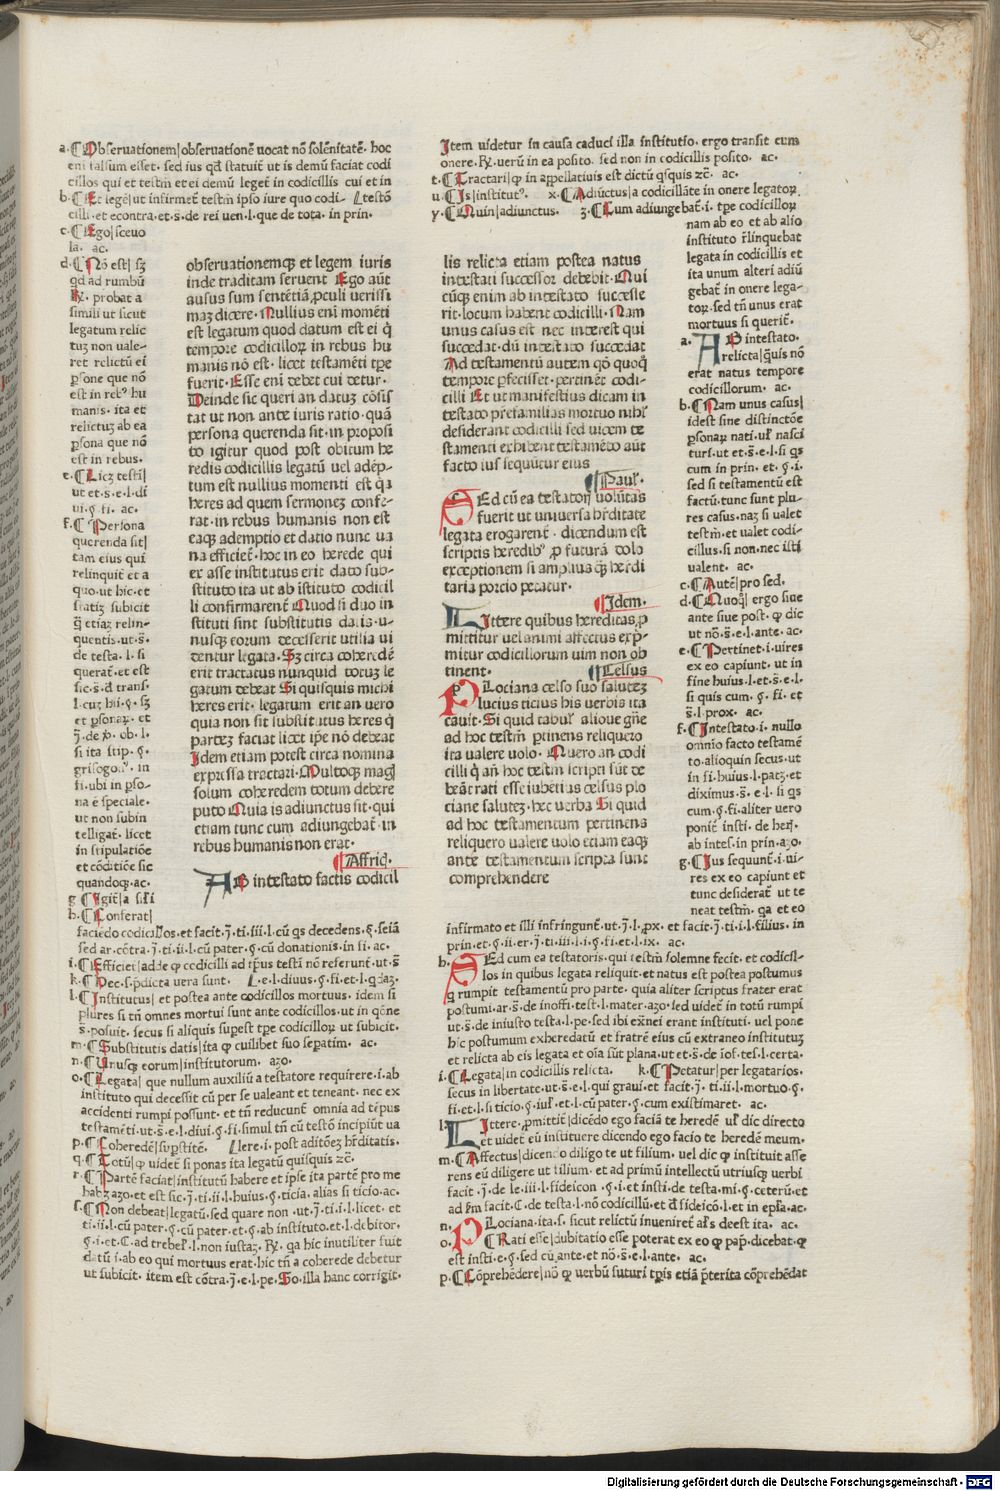 a. Obseruationem| obseruationē uocat nō solēnitatē. hoc
eni falsum esset. sed ius qd statuit ut is demū faciat codi
cillos qui et testm̄ et ei demū leget in codicillis cui et in
b. Et legē| ut infirmet testm̄ ipso iure quo codi- testō
cilli. et econtra. et. s. de rei uen. l. que de tota. in prin.
c. Ego| sceuo
la. ac.
d. Nō est| sꝫ
qd ad rumbū
R̸. probat a
simili ut sicut
legatum relic
tuꝫ non uale-
ret relictū ei
ꝑsone que nō
est in reb⁹ hu
manis. ita et
relictuꝫ ab ea
ꝑsona que nō
est in rebus.
e. Licꝫ testi|
ut et. s. e. l. di
ui. §. fi. ac.
f. Persona
querenda sit|
tam eius qui
relinquit et a
quo. ut hic. et
statiꝫ subicit
q̄ etiaꝫ relin-
quentis. ut. s̄.
de testa. l. si
querat̄. et est
sic. s̄. d trans.
l. cuꝫ hii. §. sꝫ
et ꝑsonaꝝ. et
j̄. de ꝟ. ob. l.
si ita stip. §.
grisogon⁹. in
fi. ubi in ꝑso-
na ē speciale.
ut non subin
telligat̄. licet
in stipulatiōe
et cōditiōe sic
quandoqꝫ. ac.
g
h. Conferat|
faciēdo codicillos. et facit. j̄. ti. iii. l. cū qs decedens. §. seiā
sed ar. cōtra. j̄. ti. ii. l. cū pater. §. cū donationis. in fi. ac.
i. Efficiet| adde ꝙ codicilli ad tp̄us testi nō referunt. ut. s̄
k. Nec. s. p̄dicta uera sunt. e. l. diuus. §. fi. et. l. qdaꝫ.
l. Institutus| et postea ante codicillos mortuus. idem si
plures si tn̄ omnes mortui sunt ante codicillos. ut in qōne
s̄. posuit. secus si aliquis suꝑest tp̄e codicilloꝝ ut subicit.
m. Substitutis datis| ita ꝙ cuilibet suo seꝑatim. ac.
n. Unusqꝫ eorum| institutorum. aꝫo.
o. Legata| que nullum auxiliū a testatore requirere. i. ab
instituto qui decessit cū per se ualeant et teneant. nec ex
accidenti rumpi possunt. et tn̄ reducunt̄ omnia ad tēpus
testamēti. ut. s̄. e. l. diui. §. fi. simul tn̄ cū testō incipiūt ua
p. Coheredē| suꝑstitē. lere. i. post aditōeꝫ h̄ditatis.
q. Totū| ꝙ videt̄ si ponas ita legatū quisquis ꝛc̄.
r. Partē faciat| institutū habere et ipse ita partē pro me
habꝫ aꝫo. et est sic. j̄. ti. ii. l. huius. §. ticia. alias si ticio. ac.
s. Non debeat| legatū. sed quare non. ut. j̄. ti. i. l. licet. et
ti. ii. l. cū pater. §. cū pater. et §. ab instituto. et. l. debitor.
§. i. et. C. ad trebel⁹. l. non iustaꝫ. R̸. qa hic inutiliter fuit
datū i. ab eo qui mortuus erat. hic tn̄ a coherede debetur
ut subicit. item est cōtra. j̄. e. l. pe. So. illa hanc corrigit.
obseruationemqꝫ et legem iuris
inde traditam seruent Ego aūt
ausus sum sentētiā ꝓculi uerissi
maꝫ dicere. Nullius eni momēti
est legatum quod datum est ei q̄
tempore codicilloꝝ in rebus hu
manis nō est. licet testamēti tp̄e
fuerit. Esse eni debet cui detur.
Deinde sic queri an datuꝫ cōsis
tat ut non ante iuris ratio. quā
persona querenda sit. in proposi
to igitur quod post obitum he
redis codicillis legatū uel adēp-
tum est nullius momenti est qa
heres ad quem sermoneꝫ confe-
rat. in rebus humanis non est
eaqꝫ ademptio et datio nunc ua
na efficiet̄. hoc in eo herede qui
ex asse institutus erit dato sub-
stituto ita ut ab īstituto codicil
li confirmarent̄ Quod si duo in
stituti sint substitutis datis. u-
nusqꝫ eorum decesserit utilia ui
dentur legata. Sꝫ circa coheredē
erit tractatus nunquid totuꝫ le
gatum debeat Si quisquis michi
heres erit. legatum erit an uero
quia non sit substitutus heres q̄
parteꝫ faciat licet ip̄e nō debeat
Idem etiam potest circa nomina
expressa tractari. Multoqꝫ magꝭ
solum coheredem totum debere
puto Quia is adiunctus sit. qui
etiam tunc cum adiungebat̄. in
rebus humanis non erat.
Affric̄.
AB intestato factis codicil
Item uidetur in causa caduci illa institutio. ergo transit cum
onere. R̸. uerū in ea posito. sed non in codicillis posito. ac.
t. Tractari| ꝙ in appellatiuis est dictū qsquis ꝛc̄. ac.
u. Is| institut⁹. x. Adiūctus| a codicillāte in onere legatoꝝ.
y. Quin| adiunctus. ꝫ. Cum adiungebat̄. i. tp̄e codicilloꝝ
nam ab eo et ab alio
instituto r̄linquebat
legata in codicillis et
ita unum alteri adiū
gebat̄ in onere lega-
toꝝ. sed tn̄ unus erat
mortuus si querit̄.
a. AB intestato.
relicta| q̄uis nō
erat natus tempore
codicillorum. ac.
b. Nam unus casus|
idest sine distinctōe
ꝑsonaꝝ nati. ul̄ nasci
turi. ut et. s̄. e. l. si qs
cum in prin. et. §. i.
sed si testamentū est
factū. tunc sunt plu-
res casus. naꝫ si ualet
testm̄. et ualet codi-
cillus. si non. nec isti
ualent. ac.
c. Autē| pro sed.
d. Quoq̄| ergo siue
ante siue post. ꝙ dic
ut nō. s̄. e. l. ante. ac.
e. Pertinet. i. uires
ex eo capiunt. ut in
fine huius. l. et. s̄. e. l.
si quis cum. §. fi. et
s̄. l. prox. ac.
f. Intestato. i. nullo
omnio facto testamē
to. alioquin secus. ut
in fi. huius. l. patꝫ. et
diximus. s̄. e. l. si qs
cum. §. fi. aliter uero
ponit̄ insti. de herꝫ.
ab intes. in prin. aꝫo.
g. Jus sequunt̄. i. ui-
res ex eo capiunt et
tunc desiderat̄ ut te
neat testm̄. qa et eo
lis relicta etiam postea natus
intestati successor debebit. Qui
cūqꝫ enim ab intestato successe
rit. locum habent codicilli. Nam
unus casus est nec interest qui
succedat. dū intestato succedat
Ad testamentū autem qō quoq̄
tempore ꝑfecisset. pertinēt codi-
cilli Et ut manifestius dicam in
testato prefamilias mortuo nihil
desiderant codicilli sed uicem te
stamenti exhibent testamēto aūt
facto ius sequūtur eius
Paul⁹.
SEd cū ea testatoris uolūtas
fuerit ut universa h̄ditate
legata erogarent̄. dicendum est
scriptis heredib⁹ ꝓ futurā dolo
exceptionem si amplius q̄ꝫ herdi
taria porcio petatur.
Idem.
LIttere quibus hereditas ꝓ
mittitur uel animi affectus exp̄-
mitur codicillorum uim non ob
tinent. Celsus
PLociana celso suo saluteꝫ
lucius ticius his uerbis ita
cauit. Si quid tabul⁹ alioue gn̄e
ad hoc testm̄ ꝑtinens reliquero
ita ualere uolo. Quero an codi
cilli q̄ an̄ hoc testm̄ scripti sūt de
beāt rati esse iubētius celsus plo
ciane saluteꝫ. hec uerba Si quid
ad hoc testamentum pertinens
reliquero ualere uolo etiam eaqꝫ
ante testamentum scripta sunt
comprehendere
infirmato et illi infringunt̄. ut. j̄. l. ꝓx. et facit. j̄. ti. i. l. filius. in
prin. et. §. ii. er. j̄. ti. iii. l. i. §. fi. et. l. ix. ac.
h. SEd cum ea testatoris. qui testm̄ solemne fecit. et codicil-
los in quibus legata reliquit. et natus est postea postumus
q̄ rumpit testamentū pro parte. quia aliter scriptus frater erat
postumi. ar. s̄. de inoffi. test. l. mater. aꝫo. sed uidet̄ in totū rumpi
ut. s̄. de iniusto testa. l. pe. sed ibi ex̄nei erant instituti. uel pone
hic postumum exheredatū et fratrē eius cū extraneo institutuꝫ
et relicta ab eis legata et oīa sūt plana. ut et. s̄. de īof. tes. l. certa.
i. Legata| in codicillis relicta. k. Petatur| per legatarios.
secus in libertate. ut. s̄. e. l. qui graui. et facit. j̄. ti. ii. l. mortuo. §.
fi. et. l. si ticio. §. iul⁹. et. l. cū pater. §. cum existimaret. ac.
l. LIttere. ꝓmittit̄| dicēdo ego faciā te heredē ul̄ dic directo
et uidet̄ eū instituere dicendo ego facio te heredē meum.
m. Affectus| dicendo diligo te ut filium. uel dic ꝙ instituit asse
rens eū diligere ut filium. et ad primū intellectū utriusqꝫ uerbi
facit. j̄. de le. iii. l. fideicon. §. i. et insti. de testa. mi. §. ceterū. et
ad fm̄ facit. C. de testa. l. nō codicillū. et d̄ fideicō. l. et in ep̄la. ac.
n. PLociana. ita. s. sicut relictū inueniret̄ al⁹s deest ita. ac.
o. Rati esse| dubitatio esse poterat ex eo ꝙ pap̄. dicebat. ꝙ
est insti. e. §. sed cū ante. et nō. s̄. e. l. ante. ac.
p. Cōprehēdere| nō ꝙ uerbū futuri tp̄is etiā p̄terita cōprehēdat
Digitalisierung gefördert durch die Deutsche Forschungsgemeinschaft - DFG